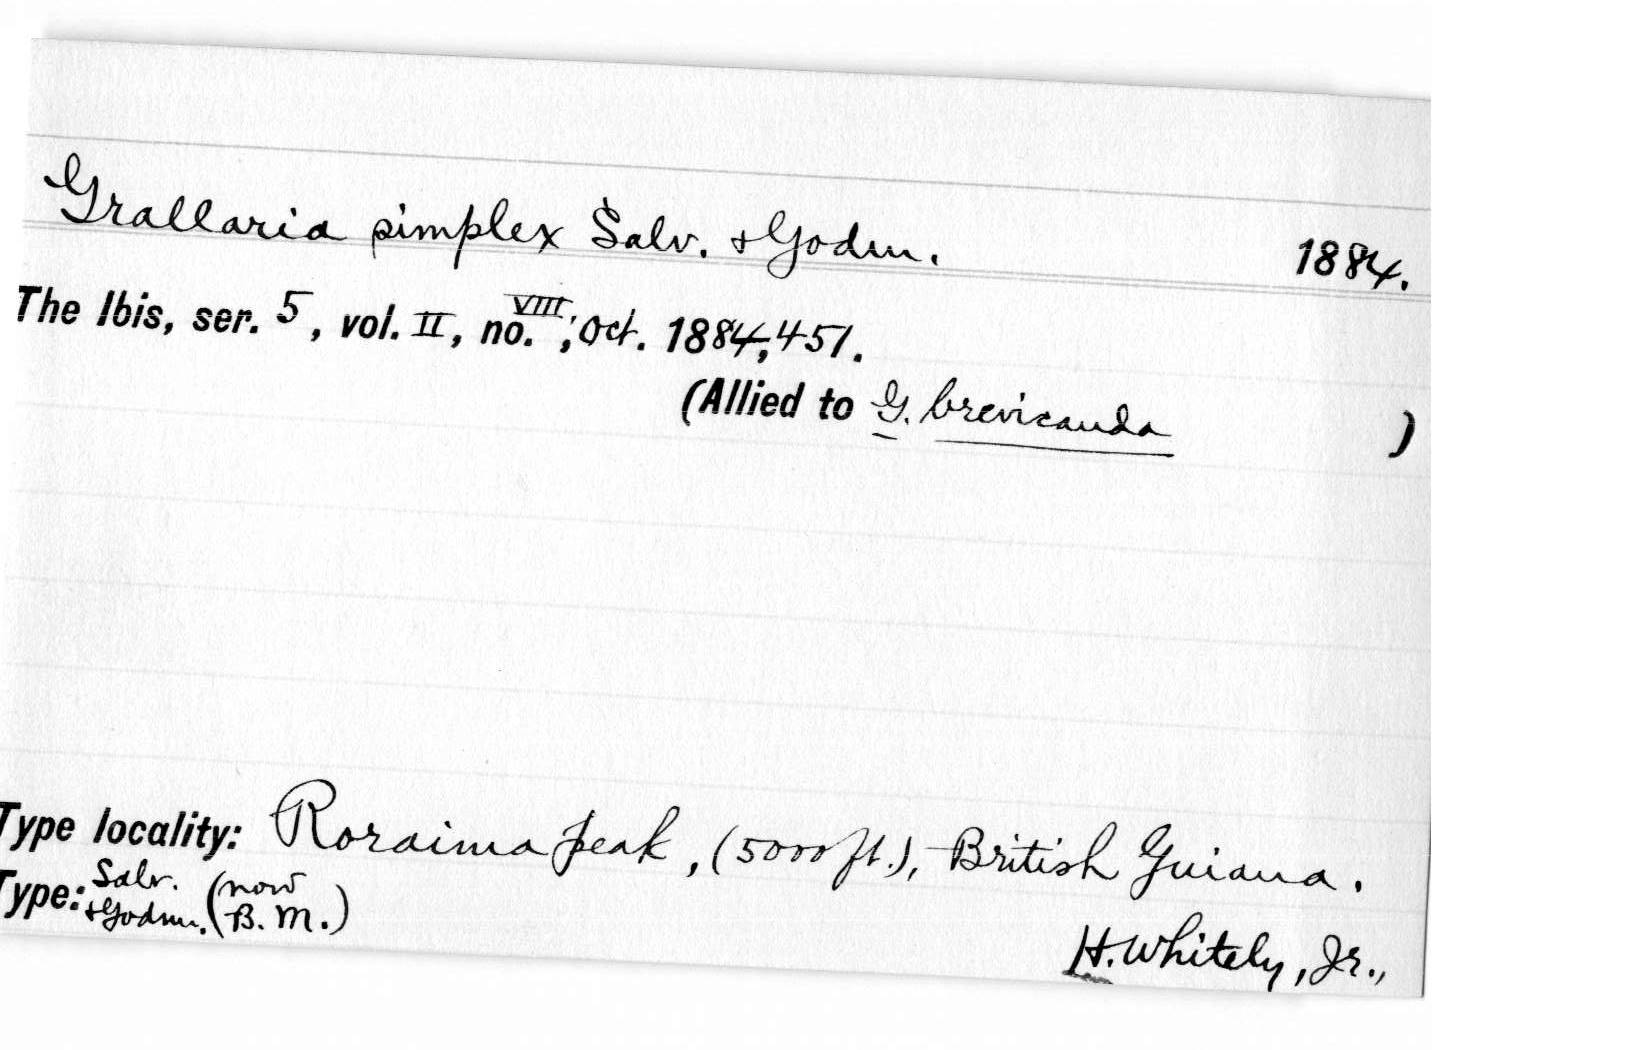 Grallaria simplex Salv. & Godm. 1884.
The Ibis, ser. 5, vol. II, no. VIII, Oct. 1884, 451.
(Allied to G. brevicauda )
Type locality: Roraima peak, (5000 ft.), British Guiana.
Type: Salv. & Godm. (now B. M.)
H. Whitely, Jr.,